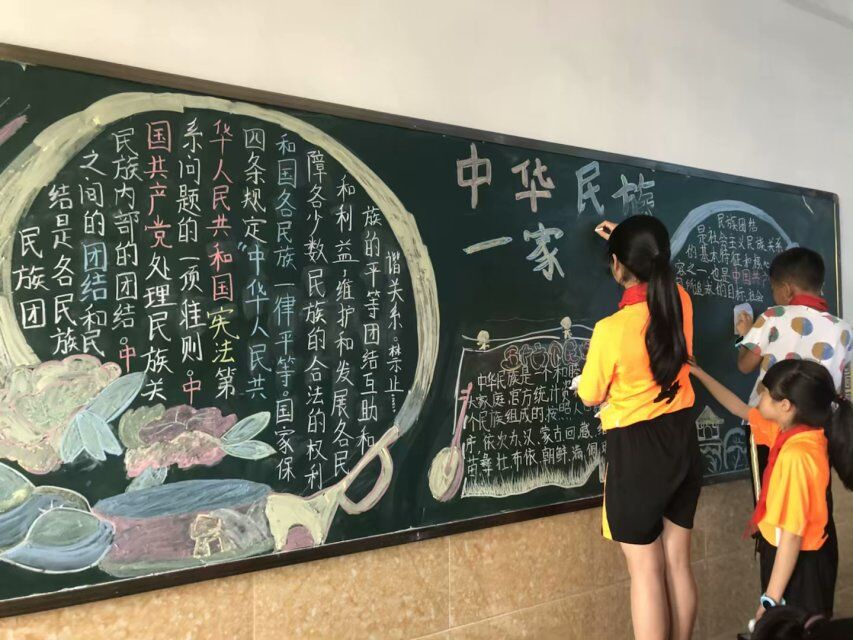 民族团
结是各民族
之间的团结和民
民族内部的团结。中
国共产党处理民族关
系问题的一项准则。中
华人民共和国宪法第
四条规定“中华人民共
和国各民族一律平等。国家保
障各少数民族的合法的权利
和利益，维护和发展各民
族的平等团结互助和
谐关系。禁止……
中华民族
一家
中华民族是一
大家庭,官方统计
个民族组成的按照人
序依次为,汉蒙古回藏,
苗彝壮布依朝鲜满侗
民族团结
是社会主义民族关系
的基本特征和核心
容之一,也是中国共
所追求的目标,社会